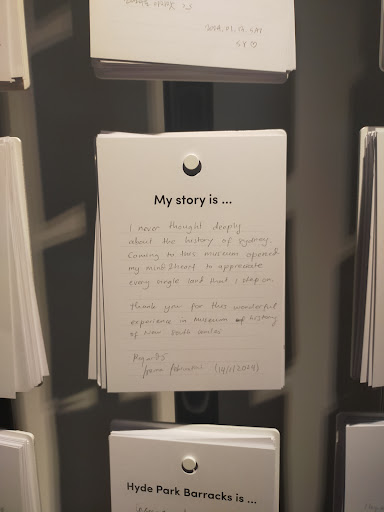 2024.01.13. SAT
My story is ...
I never thought deeply
about the history of Sydney.
Coming to this museum opened
my mind & heart to appreciate
every single land that I step on.
Thank you for this wonderful
experience in museum of history
of New South Wales
Regards
(14/1/2024)
Hyde Park Barracks is ...